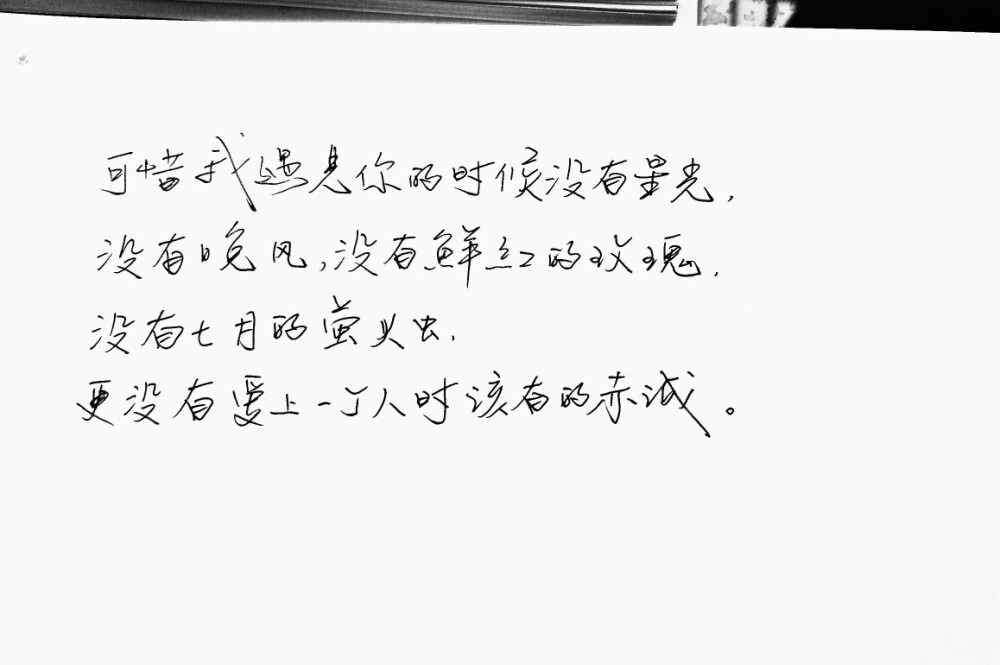 可惜我遇见你的时候没有星光,
没有晚风,没有鲜红的玫瑰,
没有七月的萤火虫,
更没有爱上一个人时该有的赤诚。